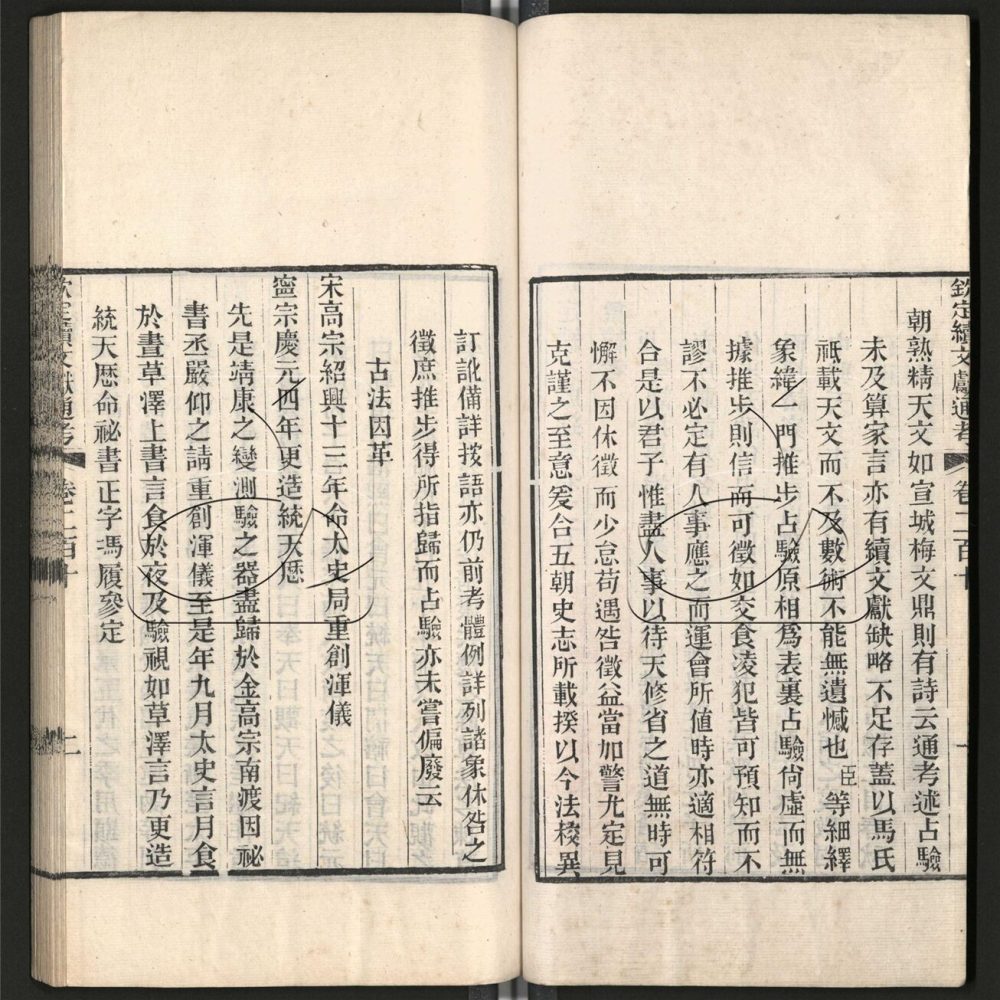 欽定續文獻通考 卷二百十
朝熟精天文如宣城梅文鼎則有詩云通考述占驗
未及算家言亦有續文獻缺略不足存蓋以馬氏
祇載天文而不及數術不能無遺憾也臣等細繹
象緯一門推步占驗原相為表裏占驗尚虛而無
據推步則信而可徵如交食凌犯皆可預知而不
謬不必定有人事應之而運會所值時亦適相符
合是以君子惟盡人事以待天修省之道無時可
懈不因休徵而少怠苟遇咎徵益當加警尤定見
克謹之至意爰合五朝史志所載揆以今法校異
訂訛備詳按語亦仍前考體例詳列諸象休咎之
徵庶推步得所指歸而占驗亦未嘗偏廢云
古法因革
宋高宗紹興十三年命太史局重創渾儀
寧宗慶元四年更造統天厯
先是靖康之變測驗之器盡歸於金高宗南渡因祕
書丞嚴仰之請重創渾儀至是年九月太史言月食
於晝草澤上書言食於夜及驗視如草澤言乃更造
統天厯命祕書正字馮履參定
欽定續文獻通考 卷二百十